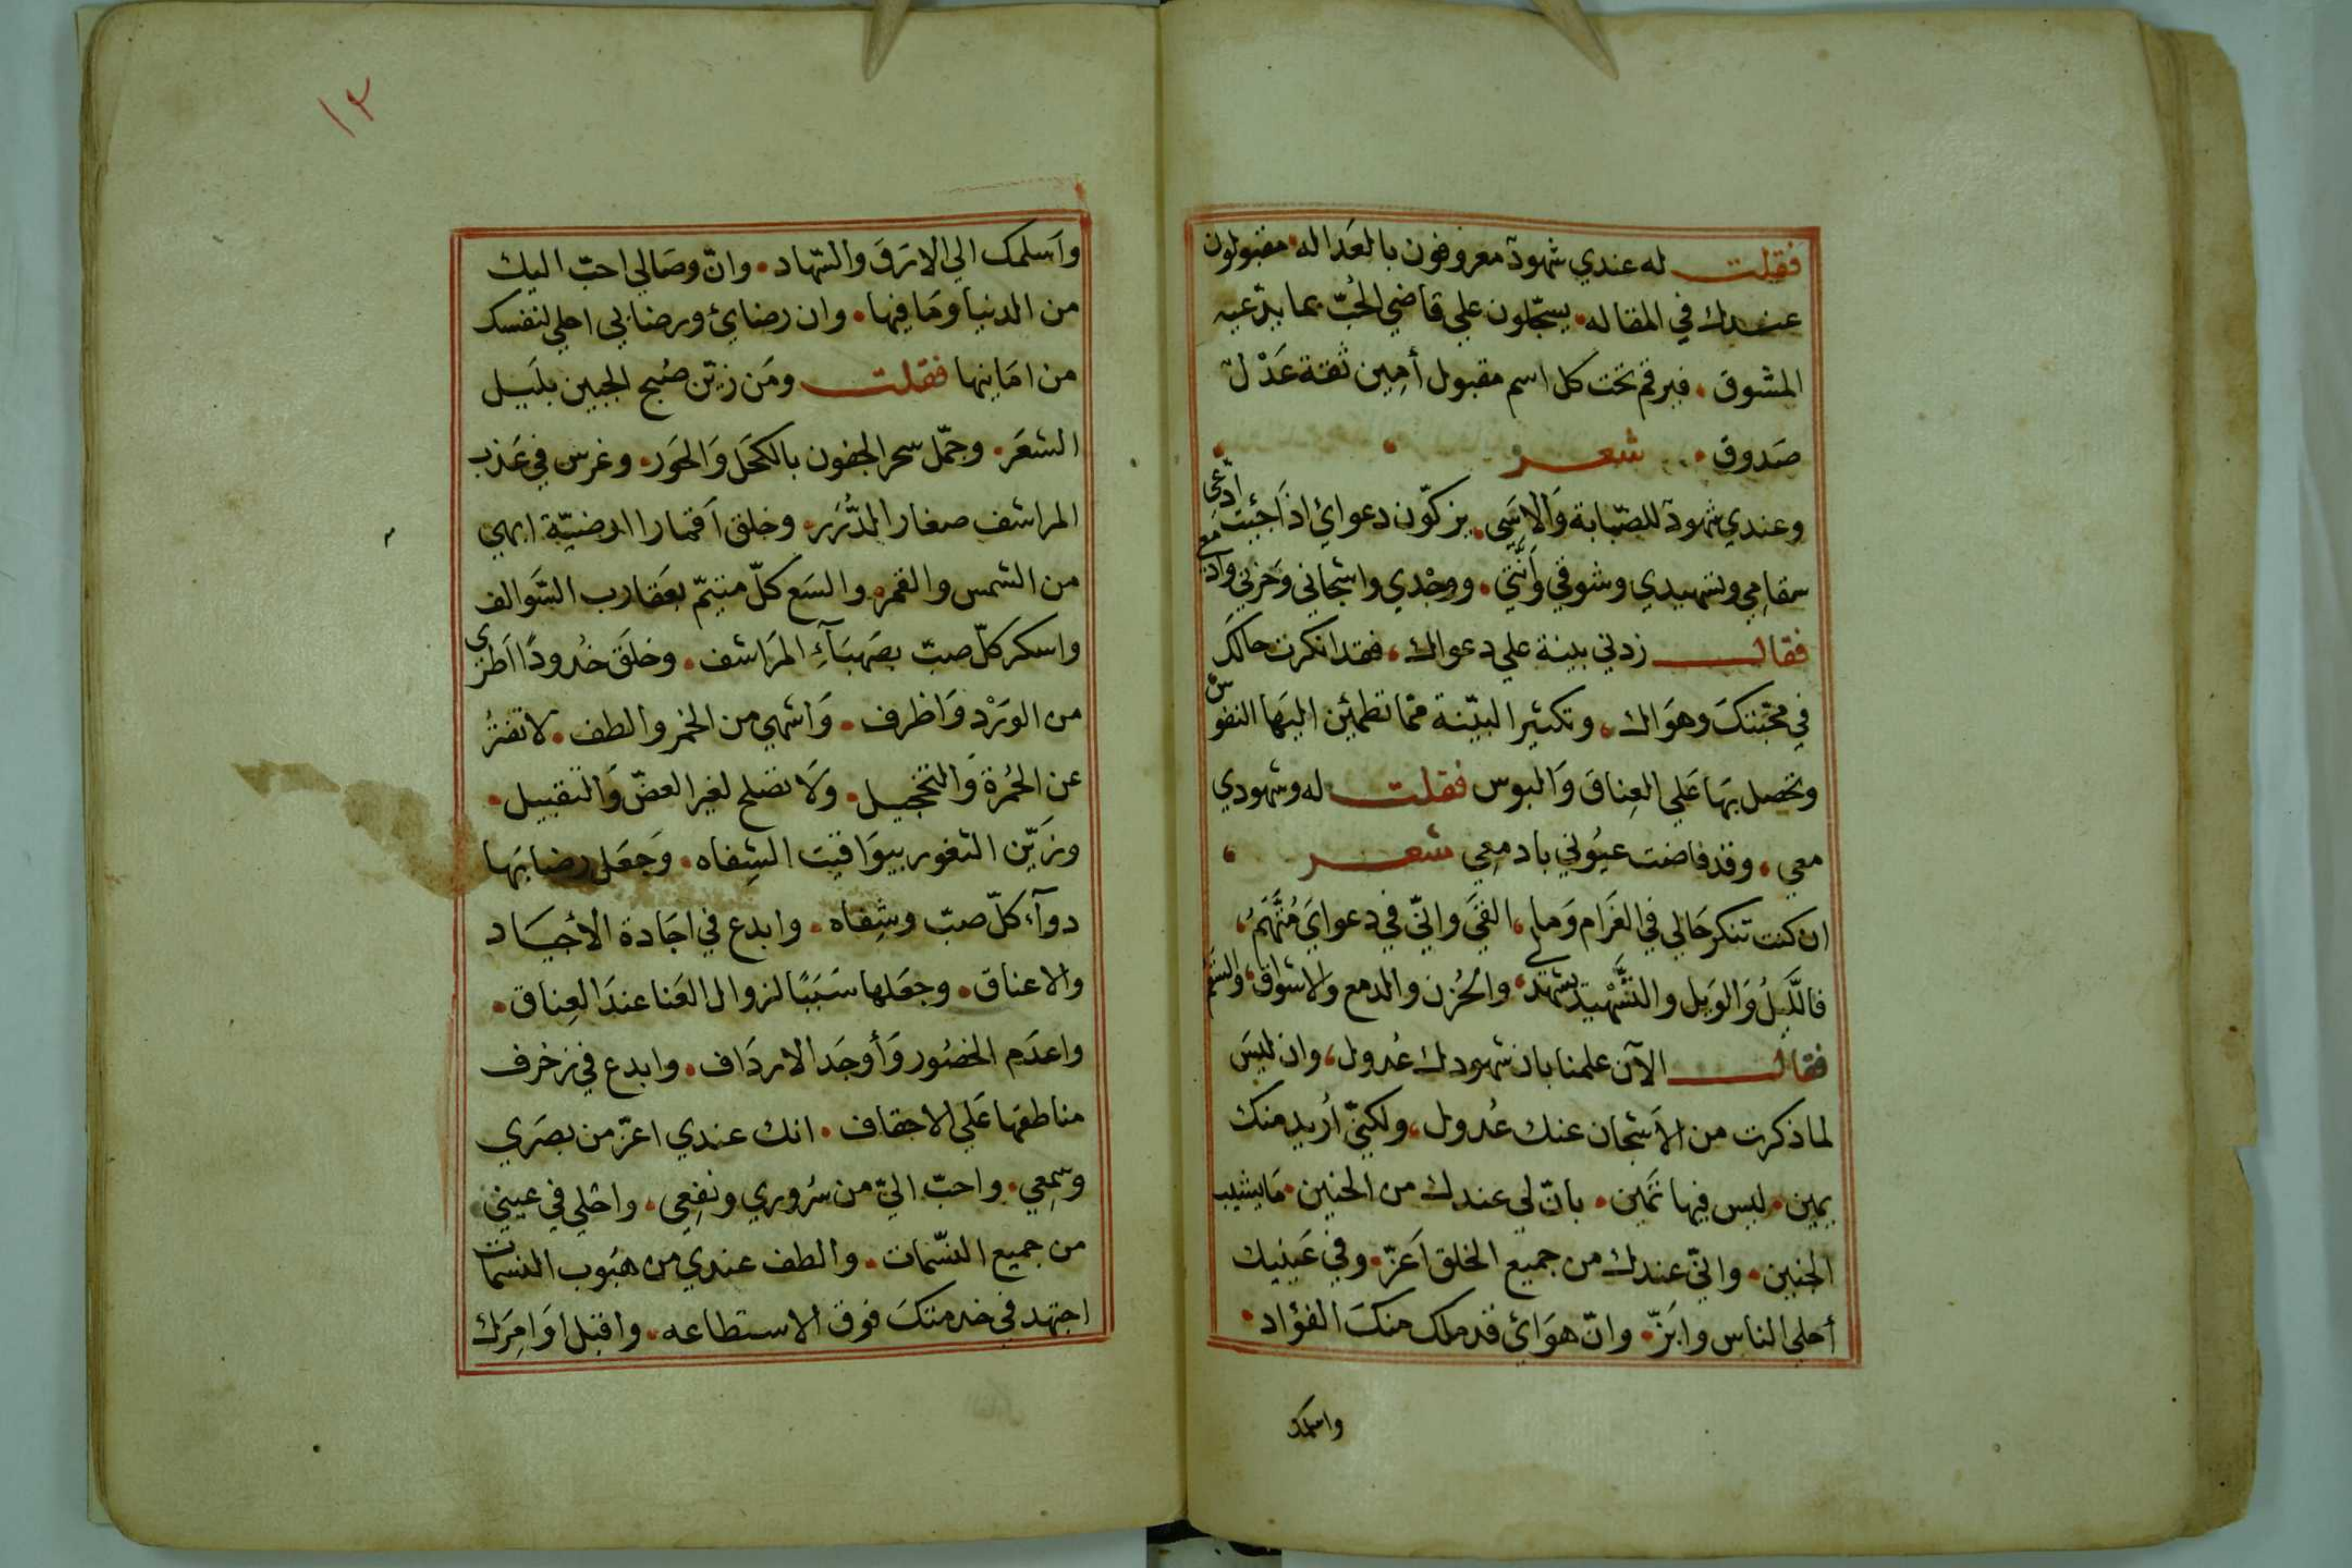 فقلت له عندي شهودٌ معروفون بالعَداله • مقبولون
عندك في المقاله • يسجّلون علي قاضي الحُبّ بما يدّعيه
المشوق • فيرقم تحت كل اسم مقبول أمِين ثقة عَدْلٌ
صَدوق • شعر
وعندي شهودٌ للصّبابة وَالاسَى • يزكّون دعوائ اذا جئت ادّعى
سقامِي وتسهيدي وشوقي وَأنّتي • ووجْدي واشجاني وَحزني وادمع
فقال زدني بينة علي دعواك ، فقد انكرت حالكَ
في محبّتكَ وهوَاك • وتكثير البيّنة ممّا تطمئن اليهَا النفوس
وتحصل بهَا عَلي العِناق وَالبوس فقلت له وشهودي
معي • وقد فاضت عيُوني بادمِعي شعر
ان كنت تنكر حَالي في الغَرام وَما ، القيَ وانّي في دعوايَ مُتّهَمُ ،
فالَّليلُ وَالوَيل والتَّسْهيد يشهد لي • والحُزن والدمع والاشواق ، والسَّقم
فقال الآن علمنا بان شهودك عُدول ، وان ليسَ
لما ذكرت من الأشجان عنك عُدول ، ولكنّي أريد منك
يمين • ليس فيها ثمَين • بانّ لي عندك من الحنين • مَا يشيب
الجنين • وانّي عندك من جميع الخلق اَعَزّ • وفي عَينيك
أحلى الناس وابَزّ • وانّ هوَائ قد ملك منكَ الفؤاد •
واسلمك
١٢
وأسلمك الي الارَق والسّهاد • وانّ وصَالي احبّ اليك
من الدنيا ومَا فيها • وان رضائ ورضابي احلي لنفسك
من امَانيها فقلت ومَن زيّن صُبح الجبين بليَل
الشعَر • وجمّل سحر الجفون بالكحَل وَالحَور • وغرس في عَذب
المراشف صغار الدُّرَر • وخلق اَقمارا ارضيّة ابهي
من الشمس والقمر • والسَع كلّ متيّم بعَقارب السَّوالف
واسكر كلّ صبّ بصَهبَآءِ المرَاشف • وخلَق خُدودًا اَطرى
من الورَدْ وَاظرف • وَاشهي من الخمر والطف • لا تفترُ
عن الحُمرة وَالتخجيل • وَلَا تصَلح لغير العضّ وَالتقبيل •
وزَيّن الثغور بيوَاقيت الشِفاه • وَجعَل رضابهَا
دوآء كلّ صبّ وشِفاه • وابدع في اجَادة الأجيَاد
والاعناق • وجعَلها سَبَبًا لزوال العَنا عندَ العِناق •
واعدَم الخصُور وَأوجَد الارداف • وابدع في زخرف
مناطقهَا عَلي الاحقاف • انك عندي اعزّ من بصَري
وسَمِعي • واحبّ اليّ من سُروري ونفِعي • واحْلي في عيني
من جميع النسّمات • والطف عندي من هبُوب النسمات
اجتهد في خدمتكَ فوق الاستطاعه • واقبل اوَامِرَك